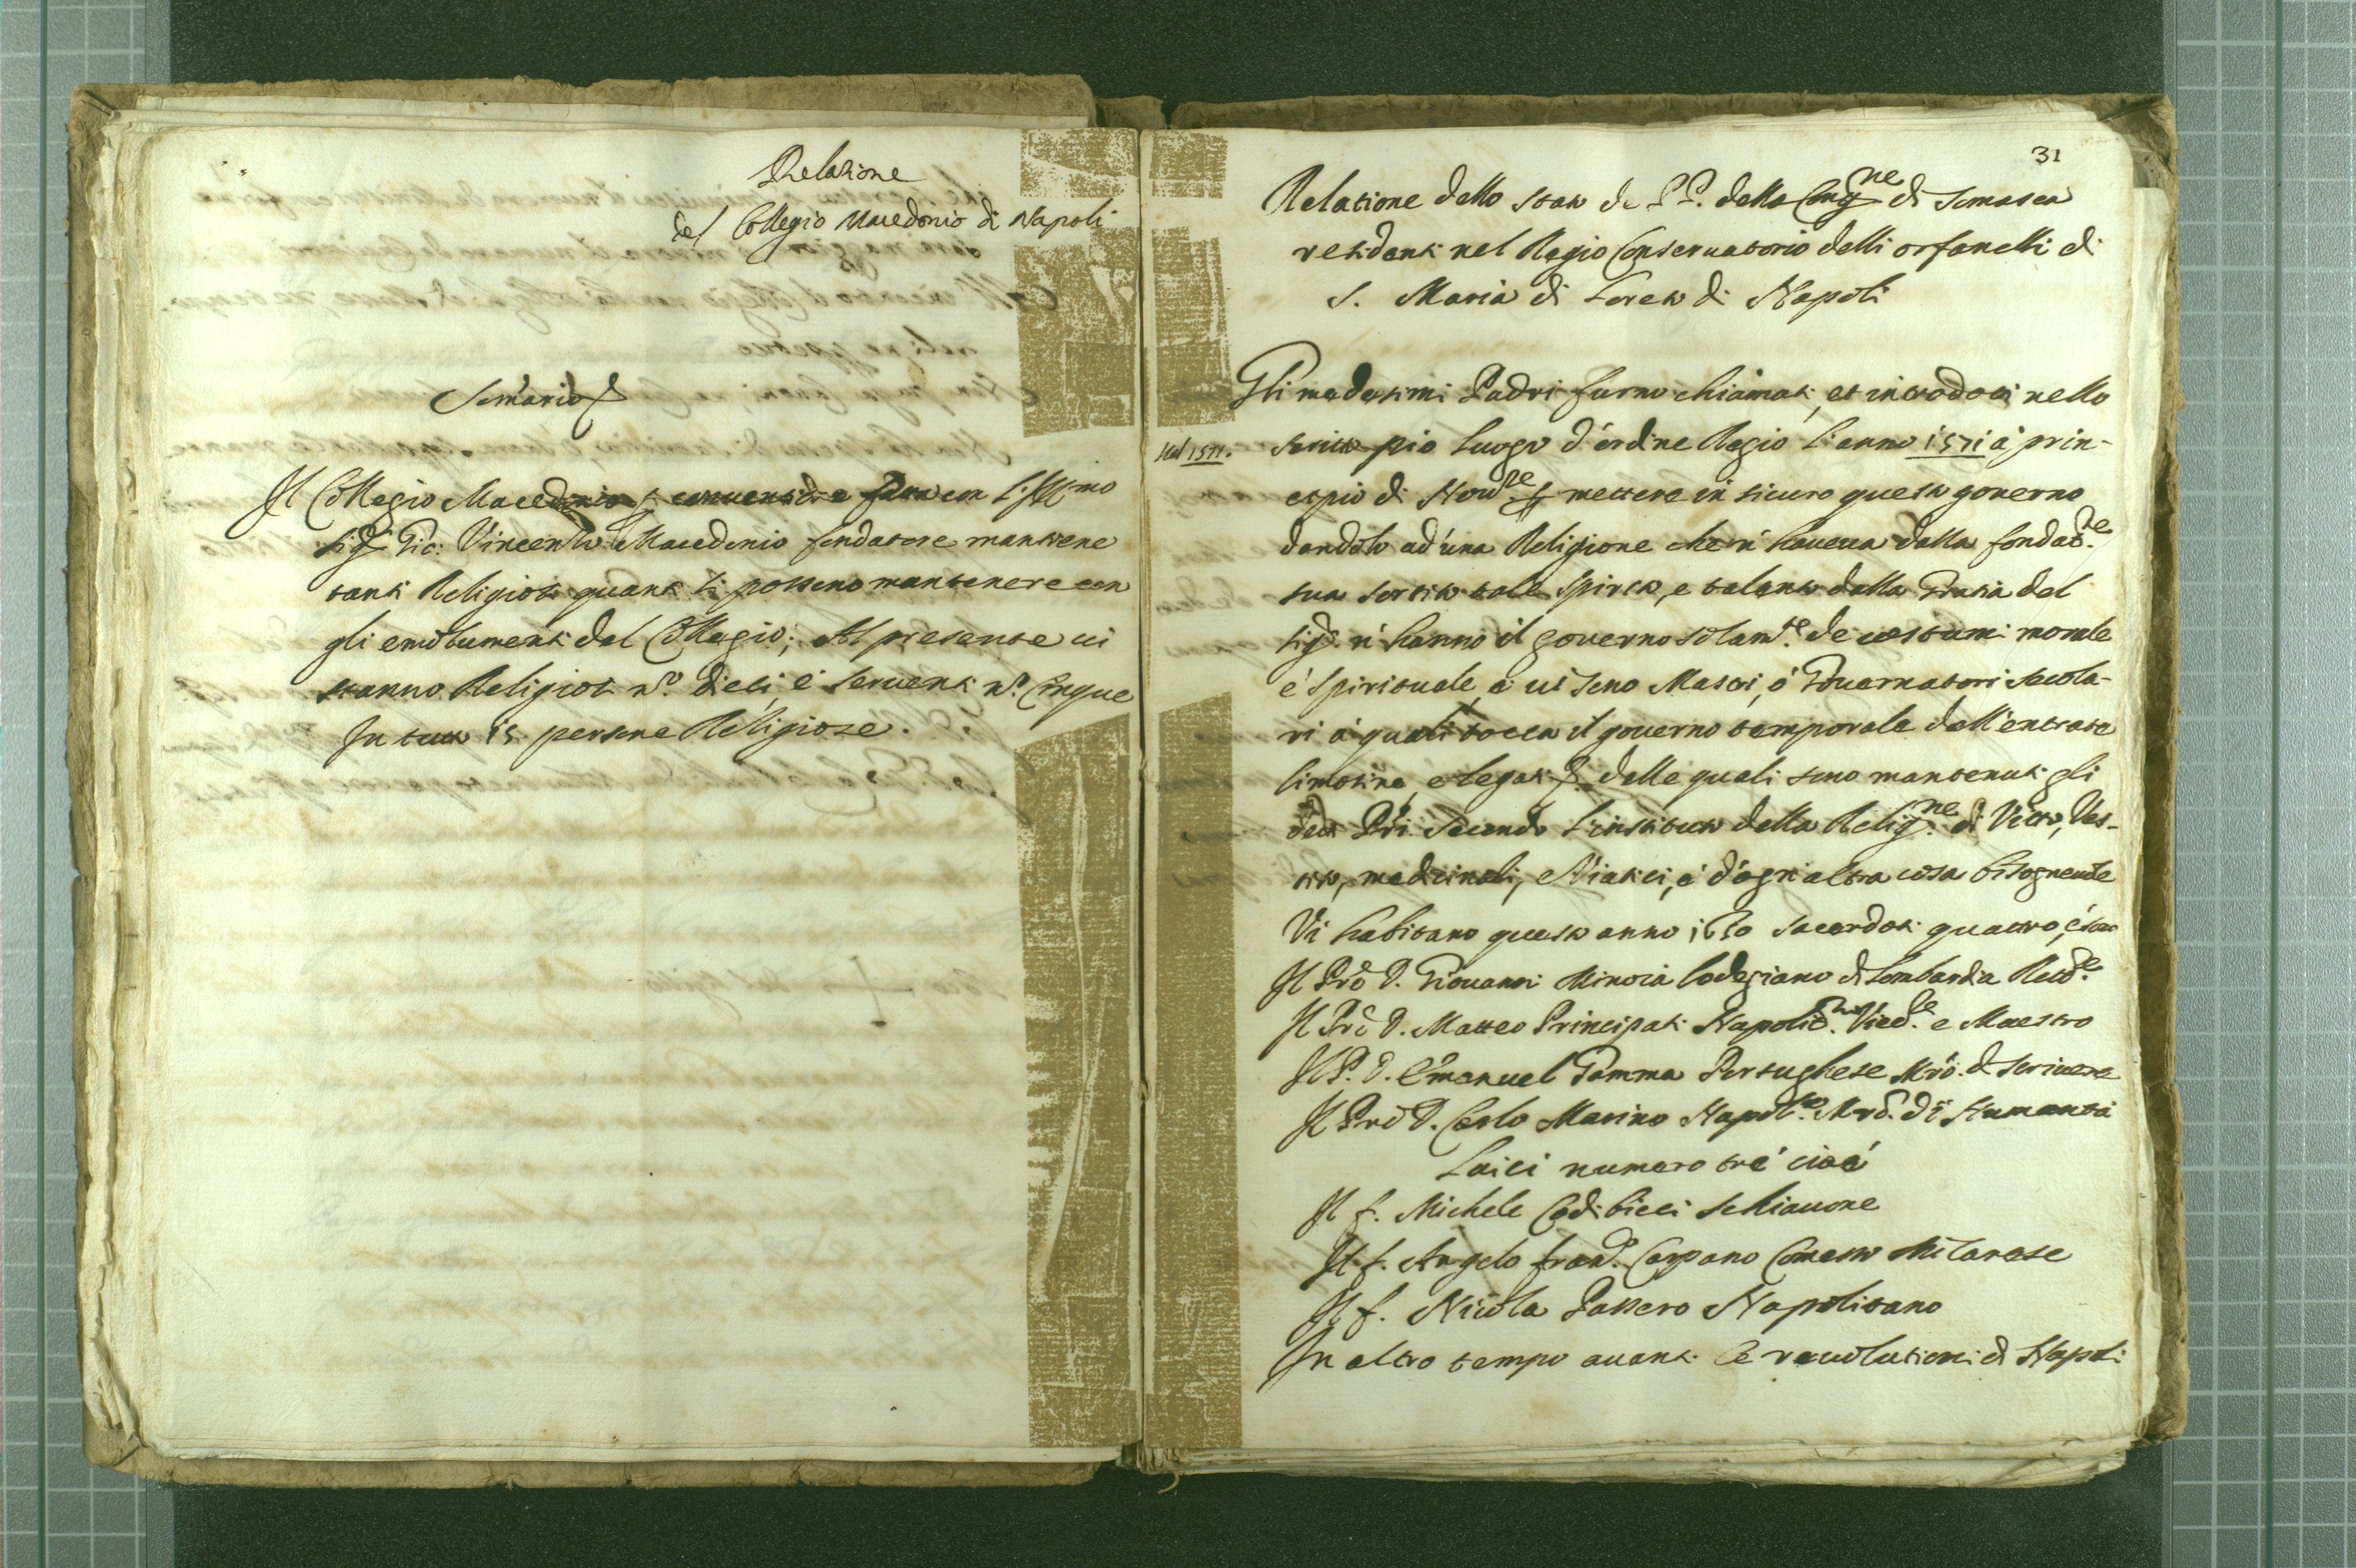 Relatione
del Collegio Macedonio di Napoli
Il Collegio Macedonio con l'Illmo
Sigr Gio: Vincenzo Macedonio fondatore mantiene
tanti Religiosi quanti si possono mantenere con
gli emolumenti del Collegio; Al presente vi
stanno Religiosi no. dieci è serventi no. Cinque
In tutto 15. persone Religiose.
31
Relatione dello stato de PP. della Congne di Somasca
residenti nel Regio Conservatorio delli orfanelli di
S. Maria di Loreto di Napoli
Gli medesimi Padri furno chiamati, et introdotti nello
Nel 1571.
pio luogo d'ordine Regio l'anno 1571 à prin-
cipio di mettere in sicuro questo governo
dandolo ad una Religione che n' haveva dalla fondat.ne
sua sortito tale spirito, e talento dalla Gratia del
Sigr. n' hanno il governo solamte. de costumi morale
è spirituale, e vi sono Mastri, ó Governatori secola-
ri à quali tocca il governo temporale dell'entrate
limosine, e legati delle quali sono mantenuti gli
detti Pri secondo l'instituto della Religne. di Vitto, Ves-
tito, medicinali, e Viatici, é d'ogni altra cosa bisognevole
Vi habitano questo anno 1650 sacerdoti quattro, é sono
Il Prē D. Giovanni Minoia lodegiano di Lombardia
Il Prē D. Matteo Principati Napolit.no e Maestro
Il P. D. Emanuel Gamma Portughese Mrō. di scrivere
Il Prē D. Carlo Marino Napol.no Mrō. di Humanità
Laici numero tré cioé
Il f. Michele Codibicci schiavone
Il f. Angelo franco. Carpano Comesso Milanese
Il f. Nicola Passero Napolitano
In altro tempo avanti le revolutioni di Napoli